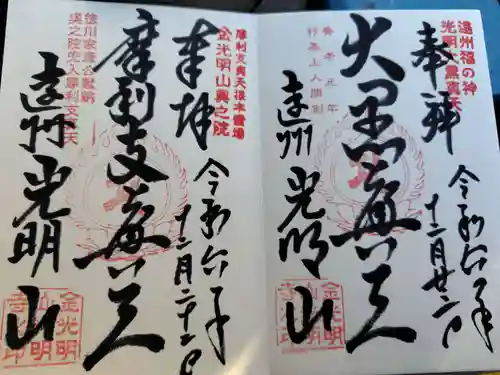 遠州福の神
光明大黒真天
奉拝
令和六年
十二月廿二日
大黒真天
養老元年
行基上人開創
遠州光明山
金光明山寺
摩利支真天根本霊場
金光明山奥之院
奉拝
令和六年
十二月二十二日
摩利支真天
徳川家康公勧請
奥之院出入摩利支真天
遠州光明山
金光明山